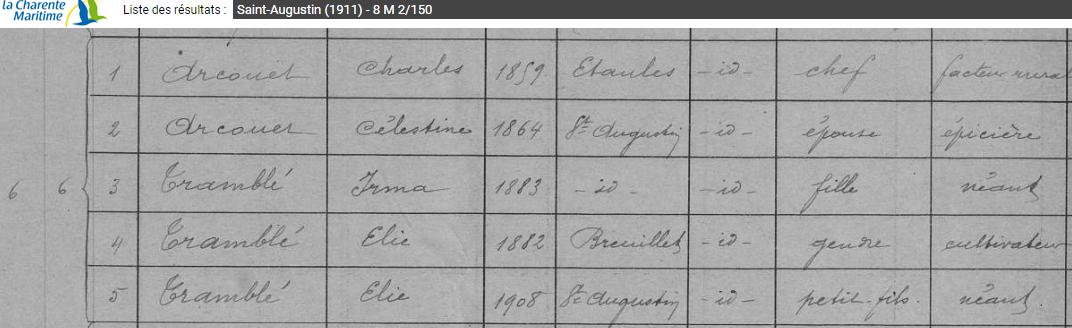 la Charente
Maritime
Liste des résultats : Saint-Augustin (1911) - 8 M 2/150
1 Arcouet Charles 1859 Etaules - id - chef facteur rural
2 Arcouet Célestine 1864 St Augustin - id - épouse épicière
6 6 3 Tramblé Irma 1883 - id - - id - fille néant
4 Tramblé Elie 1882 Breuillet - id - gendre cultivateur
5 Tramblé Elie 1908 St Augustin - id - petit-fils. néant.